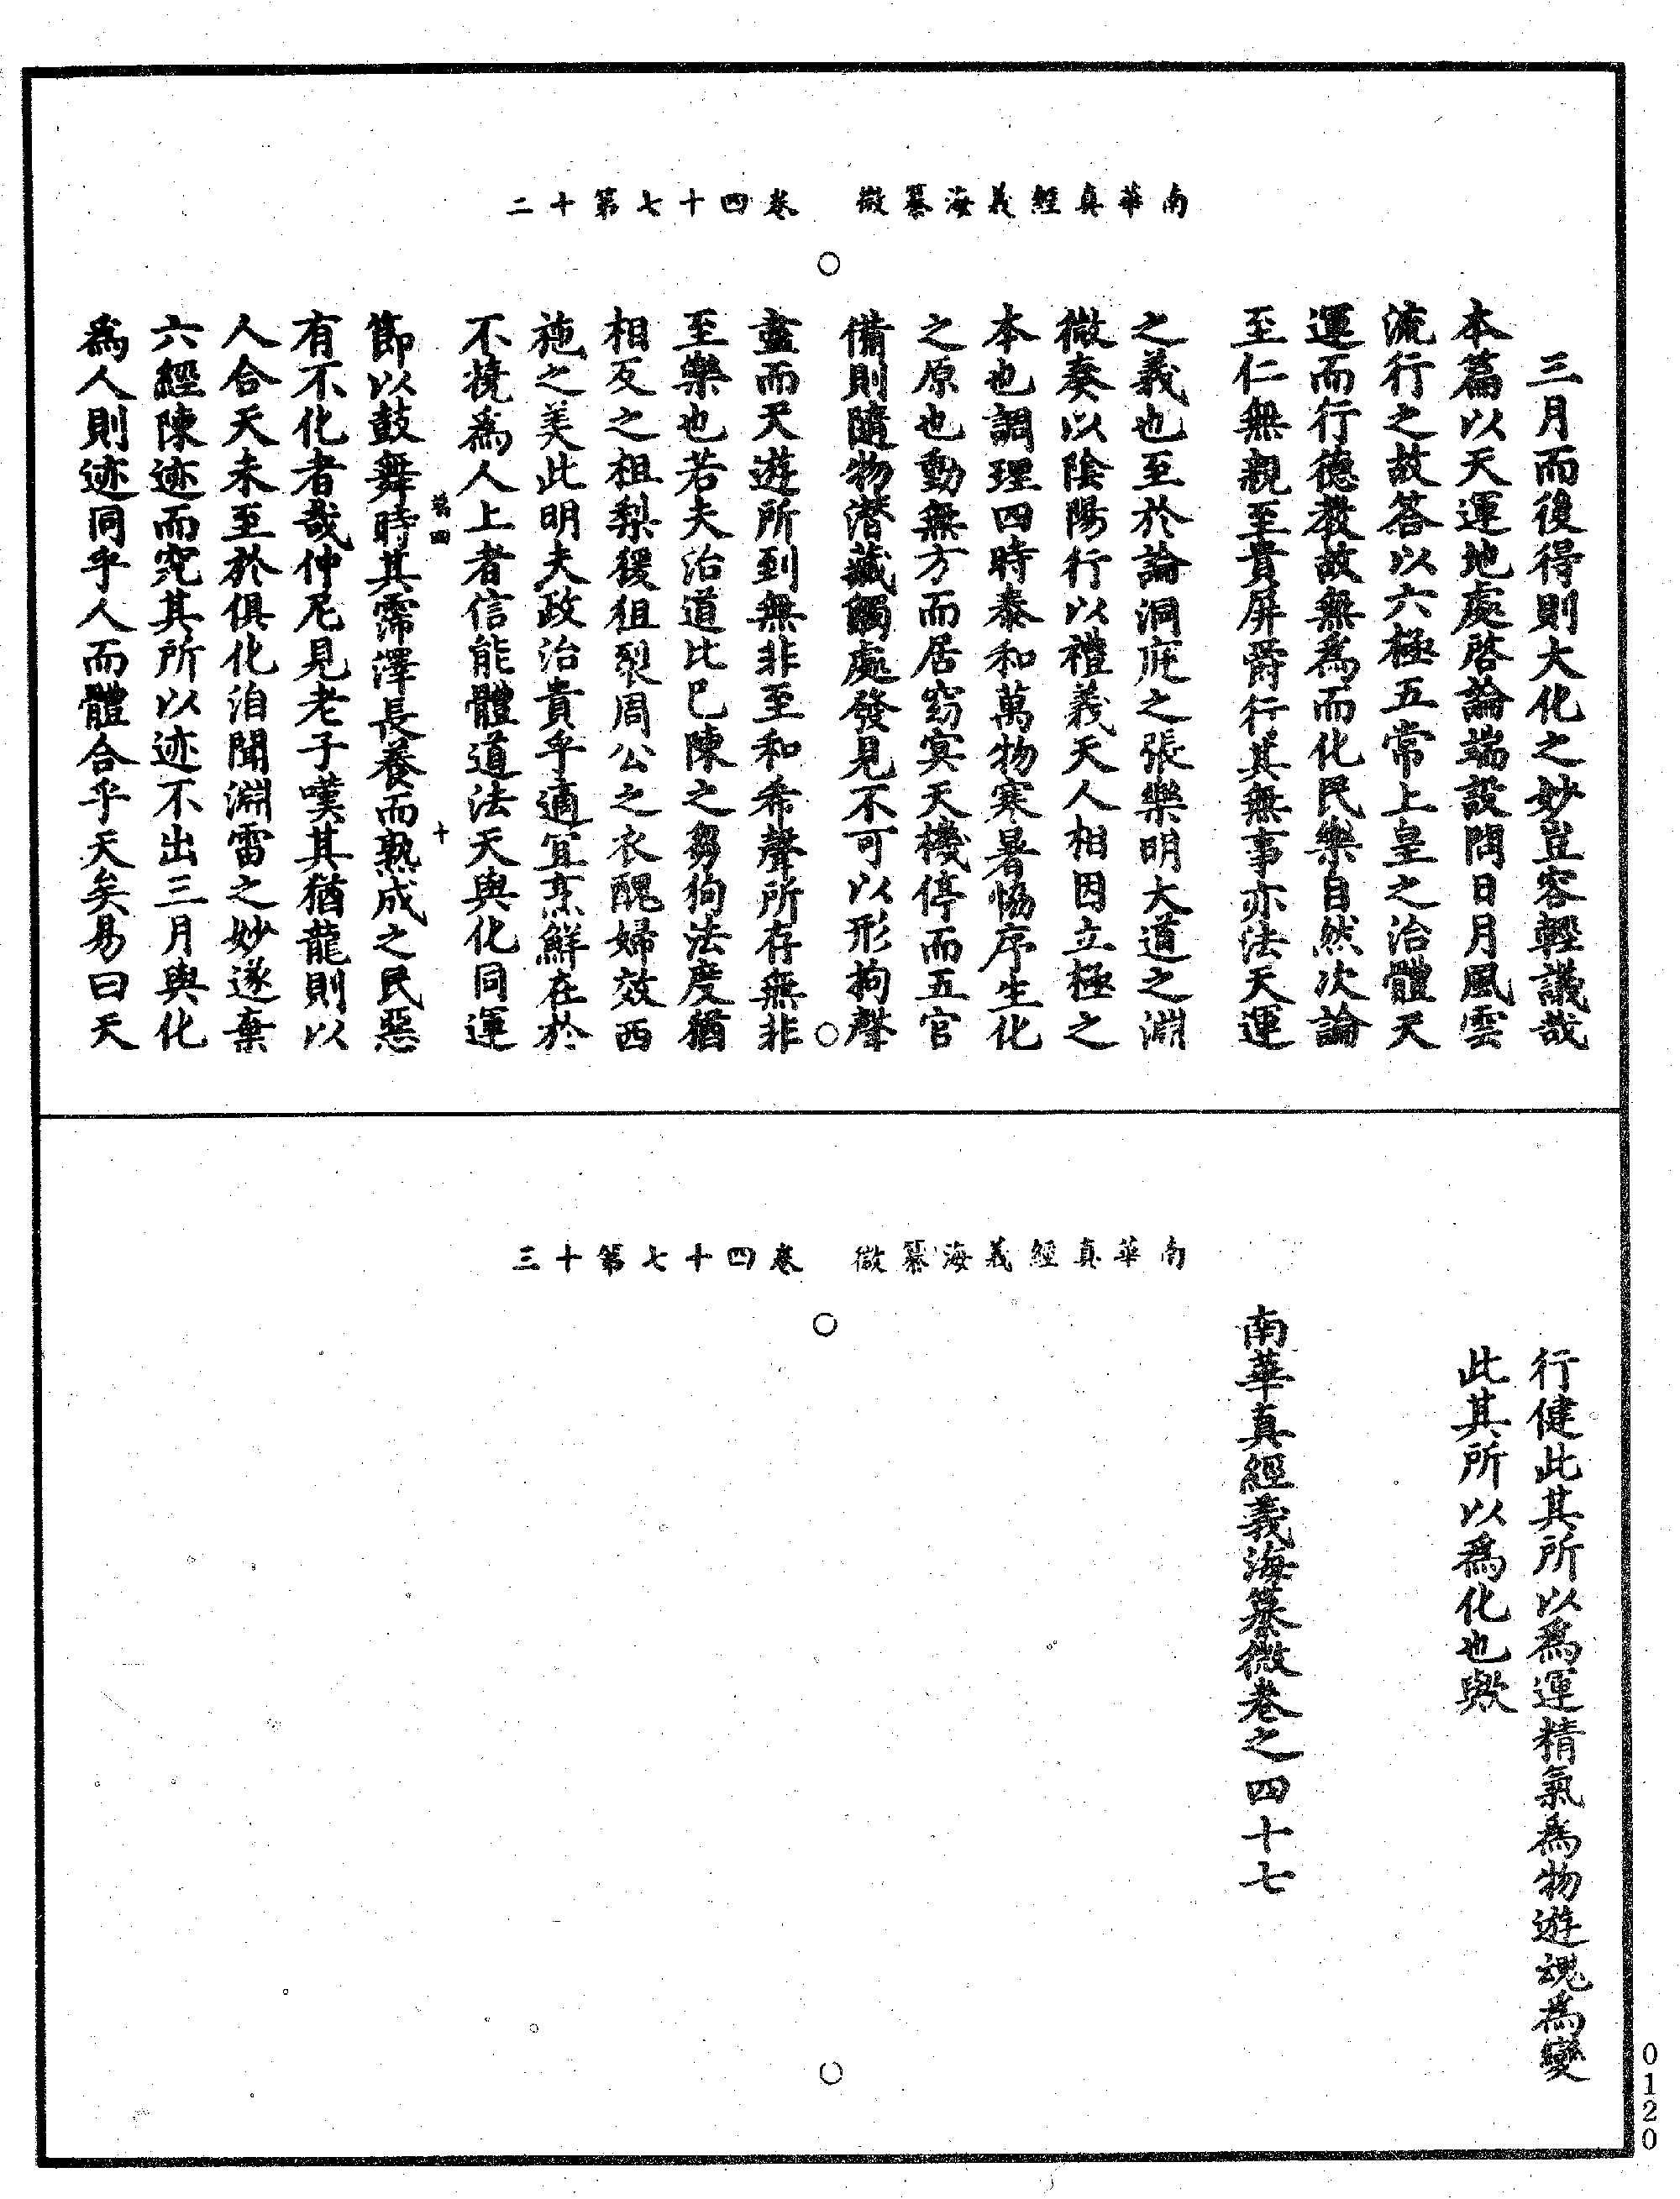 南華真經義海纂微　卷四十七第十二
三月而後得則大化之妙豈容輕議哉
本篇以天運地處啓論端設問日月風雲
流行之故答以六極五常上皇之治體天
運而行德教故無爲而化民樂自然次論
至仁無親至貴屏爵行其無事亦法天運
之義也至於論洞庭之張樂明大道之淵
微奏以陰陽行以禮義天人相因立極之
本也調理四時泰和萬物寒暑恊序生化
之原也動無方而居窈冥天機停而五官
備則隨物潛藏觸處發見不可以形拘聲
盡而天遊所到無非至和希聲所存無非
至樂也若夫治道比已陳之芻狗法度猶
相反之柤梨猨狙裂周公之衣醜婦效西
施之美此明夫政治貴乎適宜烹鮮在於
不撓爲人上者信能體道法天與化同運
節以鼓舞時其霈澤長養而熟成之民惡
有不化者哉仲尼見老子嘆其猶龍則以
人合天未至於俱化洎聞淵雷之妙遂棄
六經陳迹而究其所以迹不出三月與化
爲人則迹同乎人而體合乎天矣易曰天
十
南華真經義海纂微　卷四十七第十三
行健此其所以爲運精氣爲物遊魂爲變
此其所以爲化也歟
南華真經義海纂微卷之四十七
0120